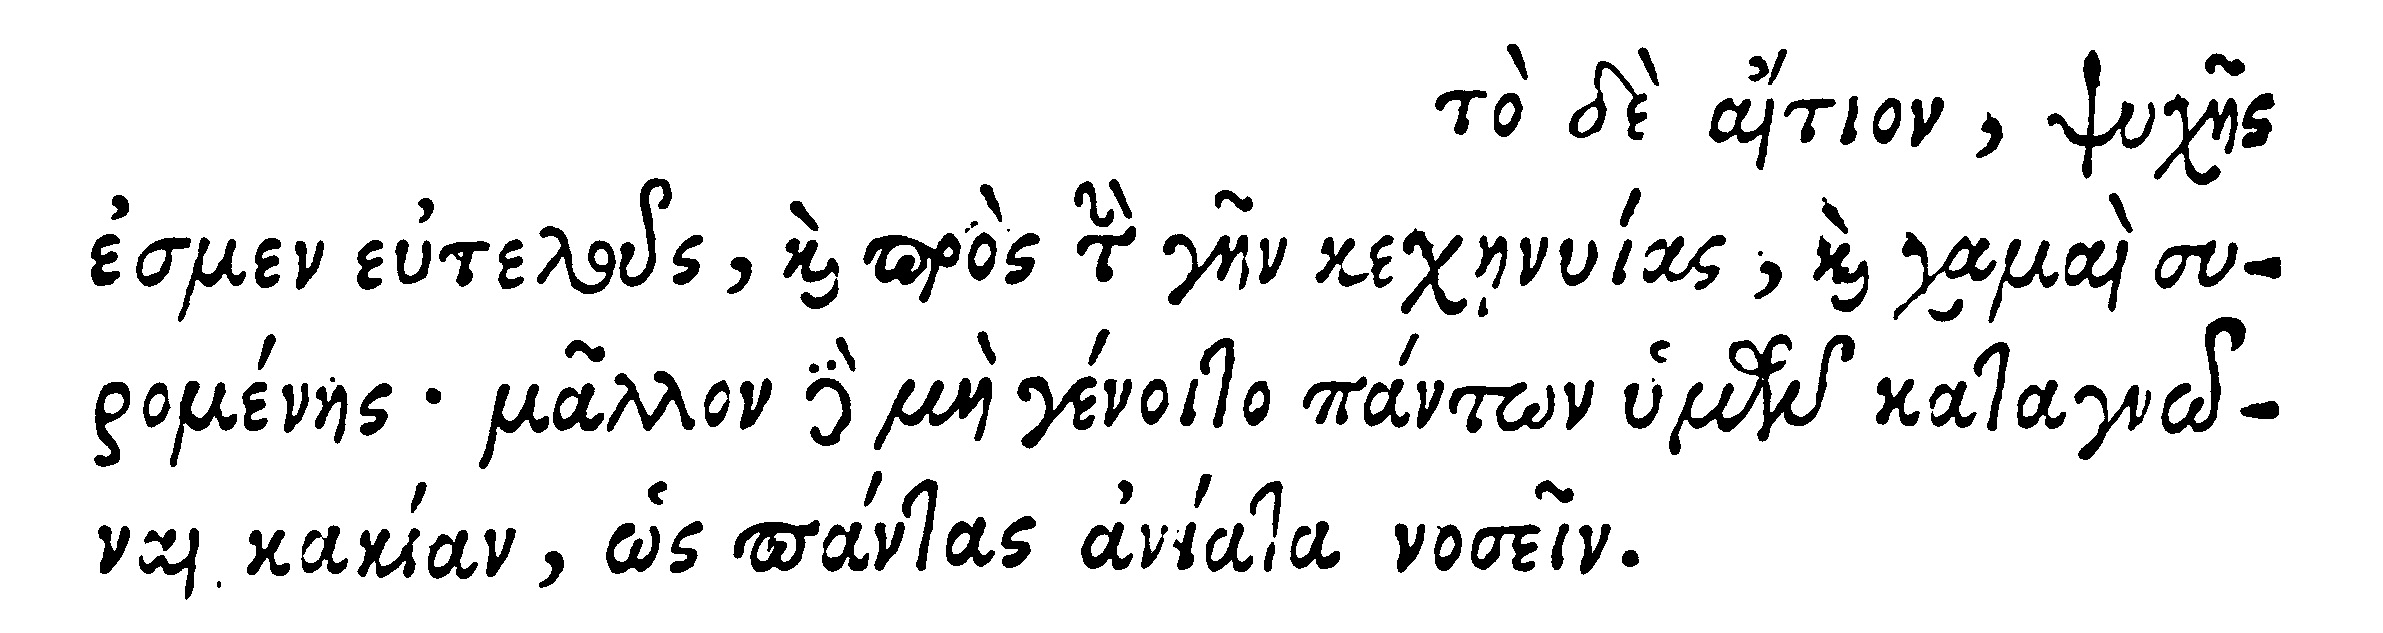 τὸ δὲ αἴτιον, ψυχῆς
ἐσμεν εὐτελοῦς, καὶ πρὸς τὴν γῆν κεχηνυίας, καὶ χαμαὶ συ-
ρομένης· μᾶλλον δὲ μὴ γένοιτο πάντων ὑμῶν καταγνῶ-
ναι κακίαν, ὡς πάντας ἀνίατα νοσεῖν.